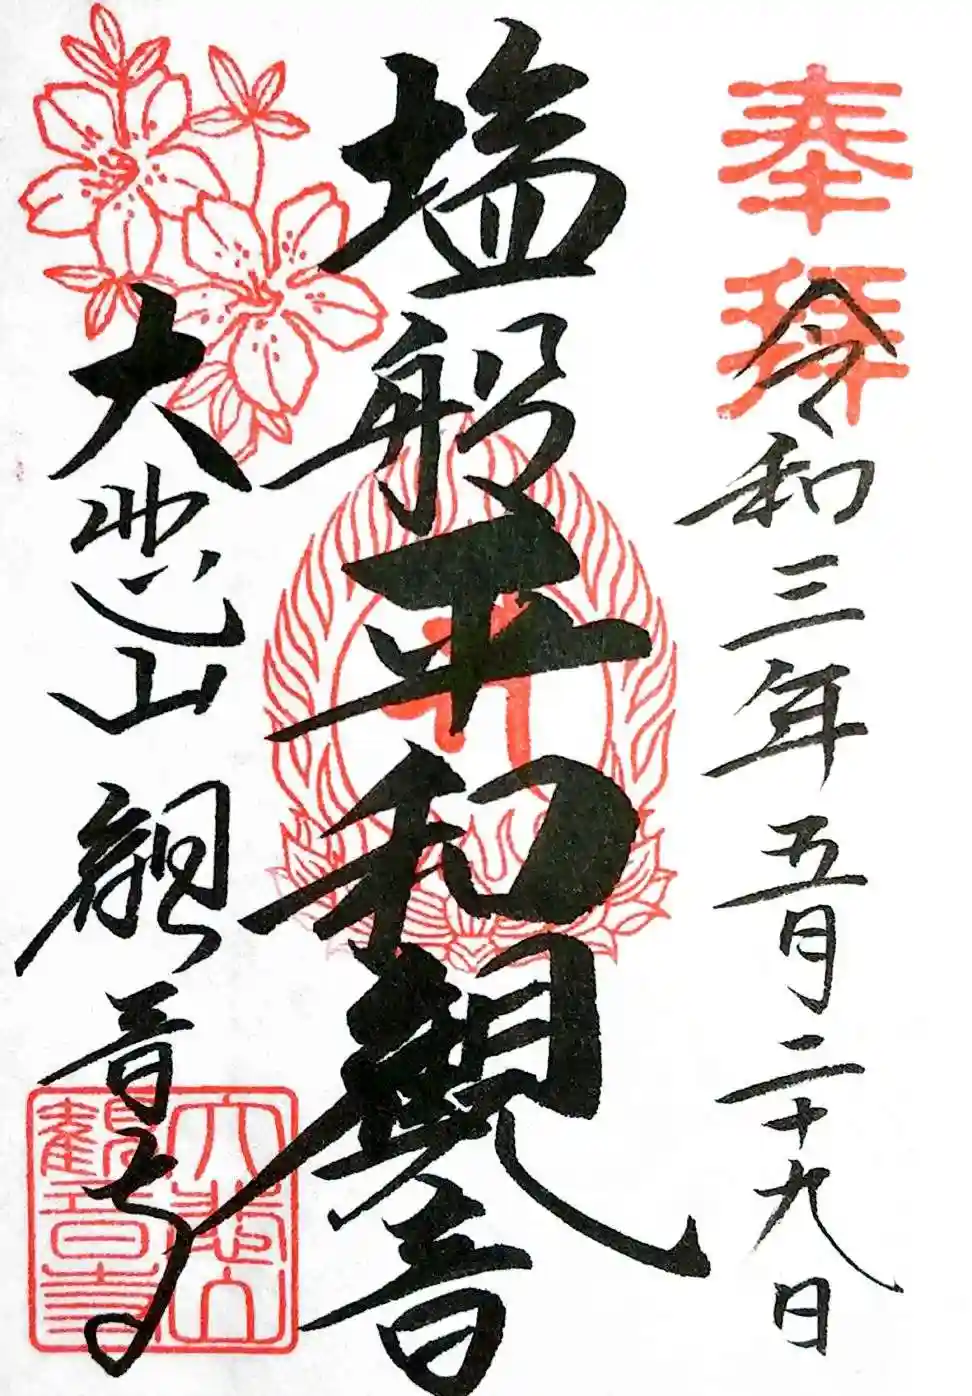 奉拝
令和三年五月二十九日
塩船平和観音
大悲山 観音寺
大悲山
観音寺